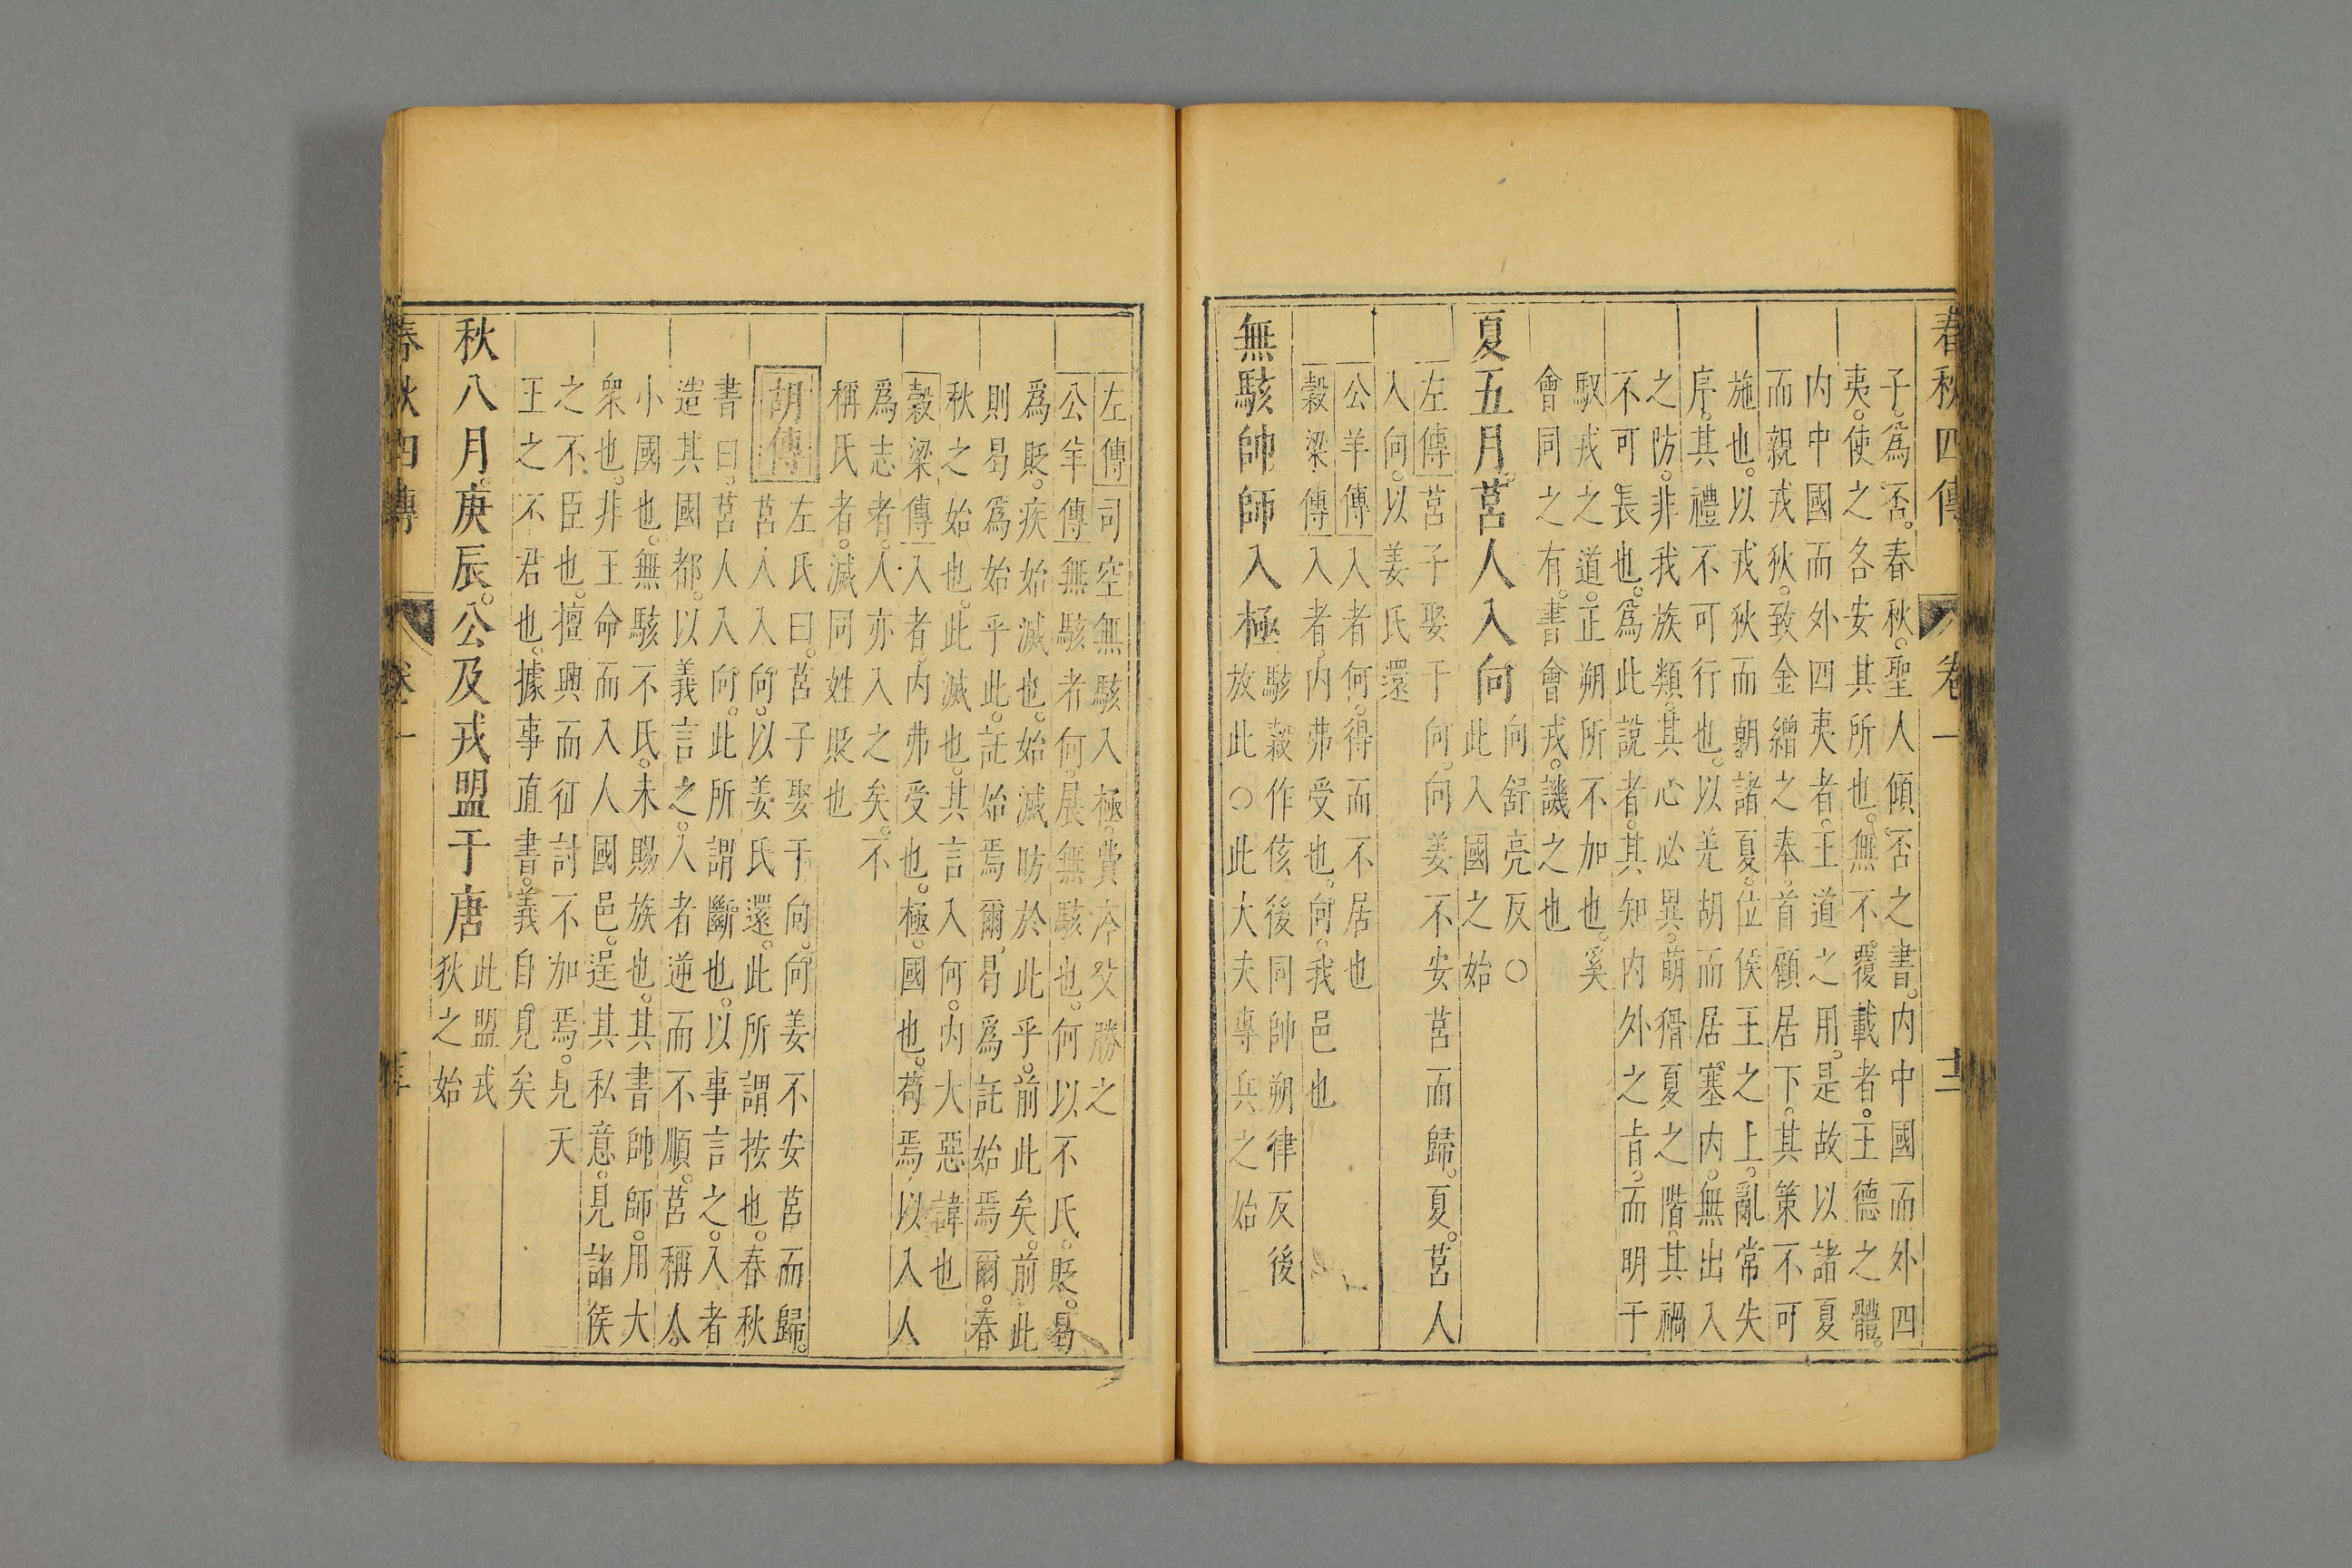 春秋四傳 卷一 十二
子爲否春秋聖人傾否之書内中國而外四
夷使之各安其所也無不覆載者王德之體
内中國而外四夷者王道之用是故以諸夏
而親戎狄致金繒之奉首顧居下其策不可
施也以戎狄而朝諸夏位侯王之上亂常失
序其禮不可行也以羌胡而居塞内無出入
之防非我族類其心必異萌猾夏之階其禍
不可長也爲此說者其知内外之旨而明于
馭戎之道正朔所不加也奚
會同之有書會戎譏之也
夏五月莒人入向
向舒亮反○
此入國之始
左傳莒子娶于向向姜不安莒而歸夏莒人
入向以姜氏還
公羊傳入者何得而不居也
穀梁傳入者内弗受也向我邑也
無駭帥師入極
駭穀作侅後同帥朔律反後
放此○此大夫專兵之始
左傳司空無駭入極費庈父勝之
公羊傳無駭者何展無駭也何以不氏貶曷
爲貶疾始滅也始滅昉於此乎前此矣前此
則曷爲始乎此託始焉爾曷爲託始焉爾春
秋之始也此滅也其言入何内大惡諱也
穀梁傳入者内弗受也極國也苟焉以入人
爲志者人亦入之矣不
稱氏者滅同姓貶也
胡傳
左氏曰莒子娶于向向姜不安莒而歸
莒人入向以姜氏還此所謂按也春秋
書曰莒人入向此所謂斷也以事言之入者
造其國都以義言之入者逆而不順莒稱人
小國也無駭不氏未賜族也其書帥師用大
衆也非王命而入人國邑逞其私意見諸侯
之不臣也擅興而征討不加焉見天
王之不君也據事直書義自見矣
秋八月庚辰公及戎盟于唐
此盟戎
狄之始
春秋四傳 卷一